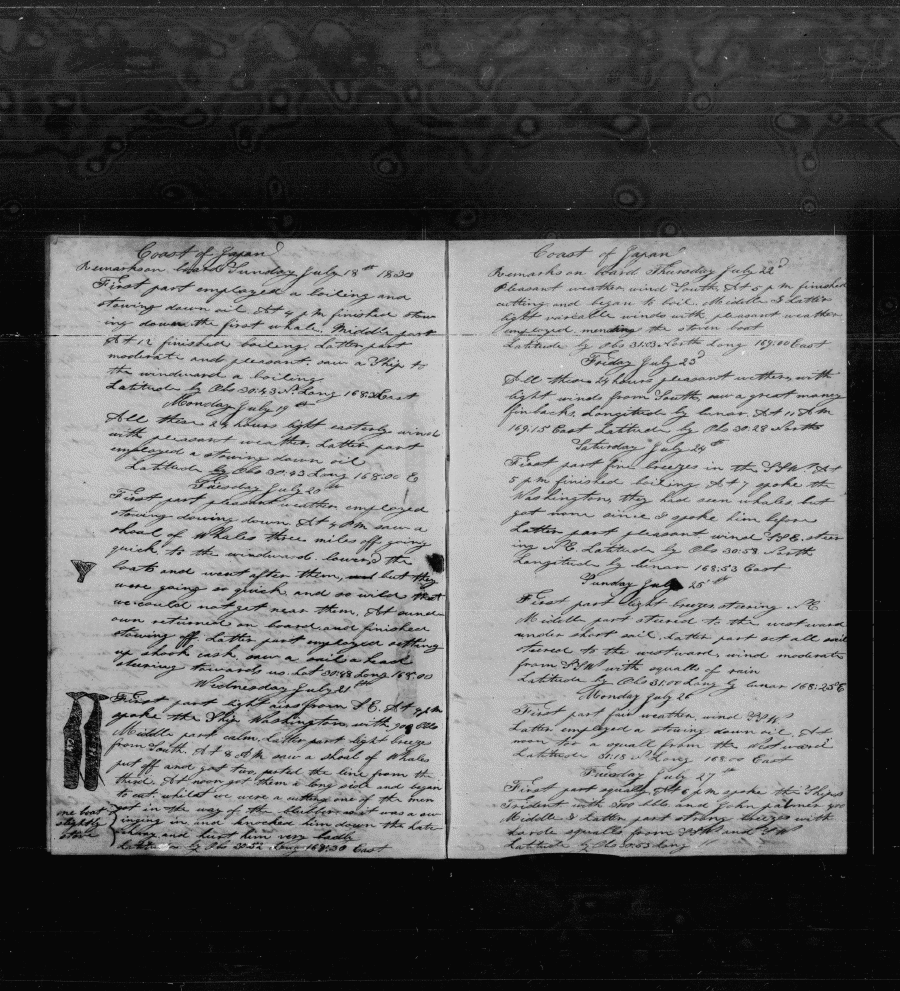 Coast of Japan
Remarks on board Sunday July 18th 1830
First part employed a boiling and
stowing down oil. At 4 p m finished stow
ing down the first whale. Middle part
At 12 finished boiling. Latter part
moderate and pleasant. saw a Ship to
the windward a boiling
Latitude by Obs 30:43 N. Long 168: East
Monday July 19th
All these 24 hours light easterly winds
with pleasant weather. Latter part
employed a stowing down oil
Latitude by Obs 30:43 Long 168:00 E
Tuesday July 20th
First part pleasant weather employed
stowing dowing down. At 4 P M saw a
shoal of Whales three miles off going
quick to the windward. lowered the
boats and went after them, and but they
were going so quick and so wild that
we could not get near them. At sund
own returned on board and finished
stowing off. Latter part employed setting
up shook cask saw a sail a head
steering towards us. Lat 30:48 Long 168:00
Wednesday July 21st
First part light airs from S E. At 4 p m
spoke the Ship Washington, with 900 bbls
Middle part calm. Latter part light breeze
from South. At 8 A M saw a shoal of Whales
put off and got two, parted the line from the
third. At noon got them a long side and began
to cut. whilst we were a cutting one of the men
got in the way of the blubber as it was a sw
inging in and knocked him down the hatc
hway and hurt him very badly
Latitude by Obs 30:52 Long 168:30 East
one boat
slightly
stove
Coast of Japan
Remarks on board Thursday July 22d
Pleasant weather, wind South, At 5 p m finished
cutting and began to boil. Middle & Latter
light variable winds with pleasant weather
employed mending the stoven boat
Latitude by Obs 31:03 North Long 169:00 East
Friday July 23d
All these 24 hours pleasant wethers, with
light winds from South, saw a great many
finbacks Longitude by lunar. At 11 A M
169:15 East Latitude by Obs 30:28 North
Saturday July 24th
First part fine breezes in the SSW. At
5 p m finished boiling At 7 spoke the
Washington, they had seen whales but
got none since I spoke him before
Latter part pleasant wind SSE. steer
ing N E. Latitude by Obs 30:58 North
Longitude by lunar 168:53 East
Sunday July 25th
First part light breezes steering N E
Middle part steered to the westward
under short sail. Latter part set all sail
steered to the westward, wind moderate
from SSW with squalls of rain
Latitude by Obs 31:00 Long by lunar 168:25 E
Monday July 26
First part fair weather, wind SSW
Latter employed a stowing down oil. At
noon a squall from the Westward
Latitude 31:18 N Long 168:00 East
Tuesday July 27th
First part squally, At 6 p m spoke the Ships
Trident with bbls and John palmer 900
Middle & Latter part strong breezes with
squalls from SSW and SW
Latitude by Obs 30:53 Long